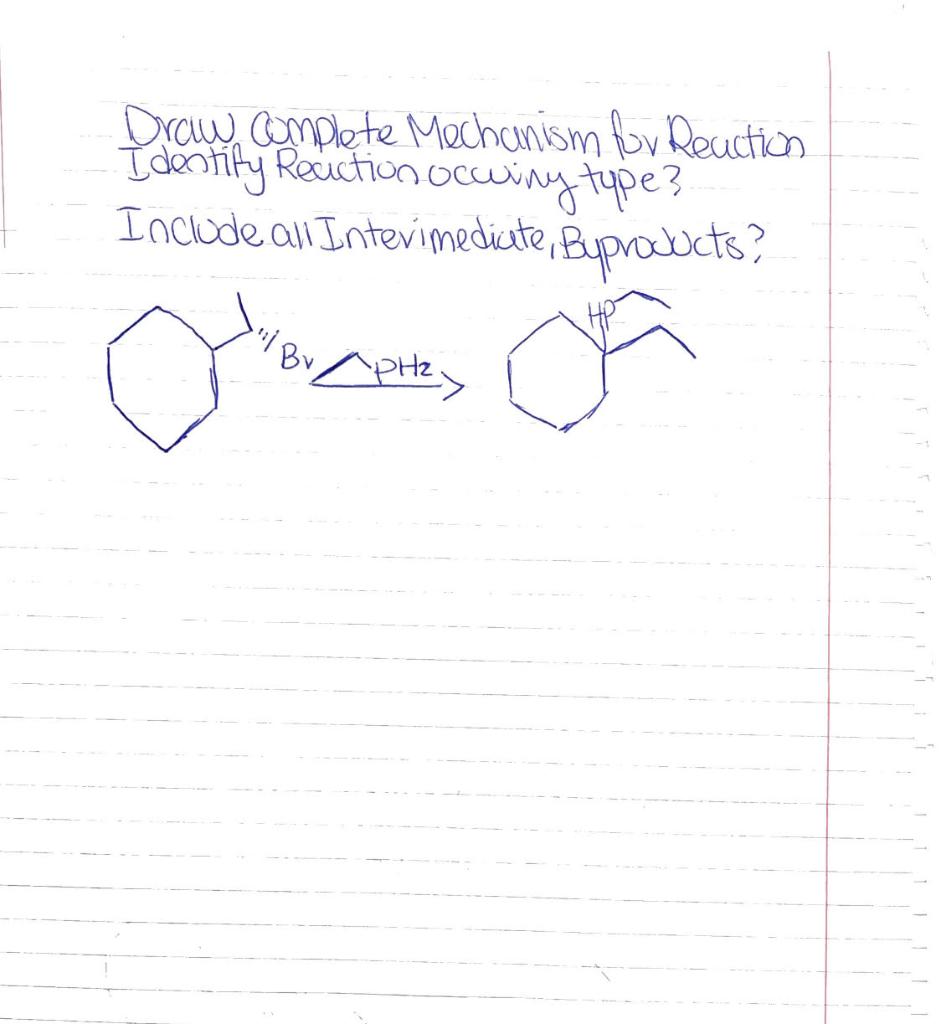 Draw Complete Mechanism for Reaction
Identify Reaction occuring type?
Include all Interimediate, Byproducts?
HP
Br
PHz